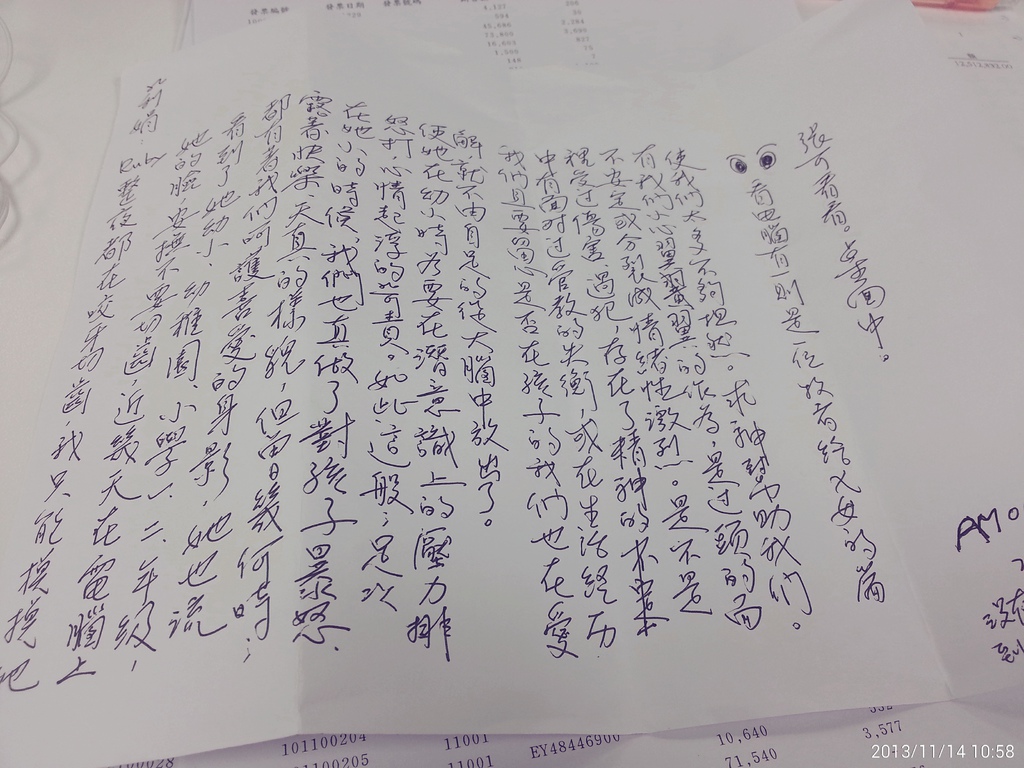 Ruby整夜都在咬牙切齒,我只能摸摸她
她的臉,安撫不要切齒,近幾天在電腦上
看到了她幼小、幼稚園、小學一、二年級,
都有著我們呵護喜愛的身影,她也流
露着快樂、天真的樣貌,但曾日幾何時;
在她小的時候,我們也真做了對孩子暴怒、
怒打,心情起浮的苛責。如此這般;足以
使她在幼小時為要在潛意識上的壓力排
解,就不由自足的從大腦中放出了。
我們且要留心是否在孩子的我們也在愛
中有面對过管教的失衡,或在生活经历
裡受过傷害、過犯,存在了精神的不
不安定或分裂成情緒性激烈。是不是
有我們小心翼翼翼的作為,是过頭的而
使我們大多不夠坦然。求神幫助我們。
看电腦有一則是一位牧者給父母的篇
張 可看看。桌面中。
AMO
10,640
3,577
71,540
101100204
11001
EY48446900
101100205
11001
發票日期
發票號碼
2013/11/14 10:58